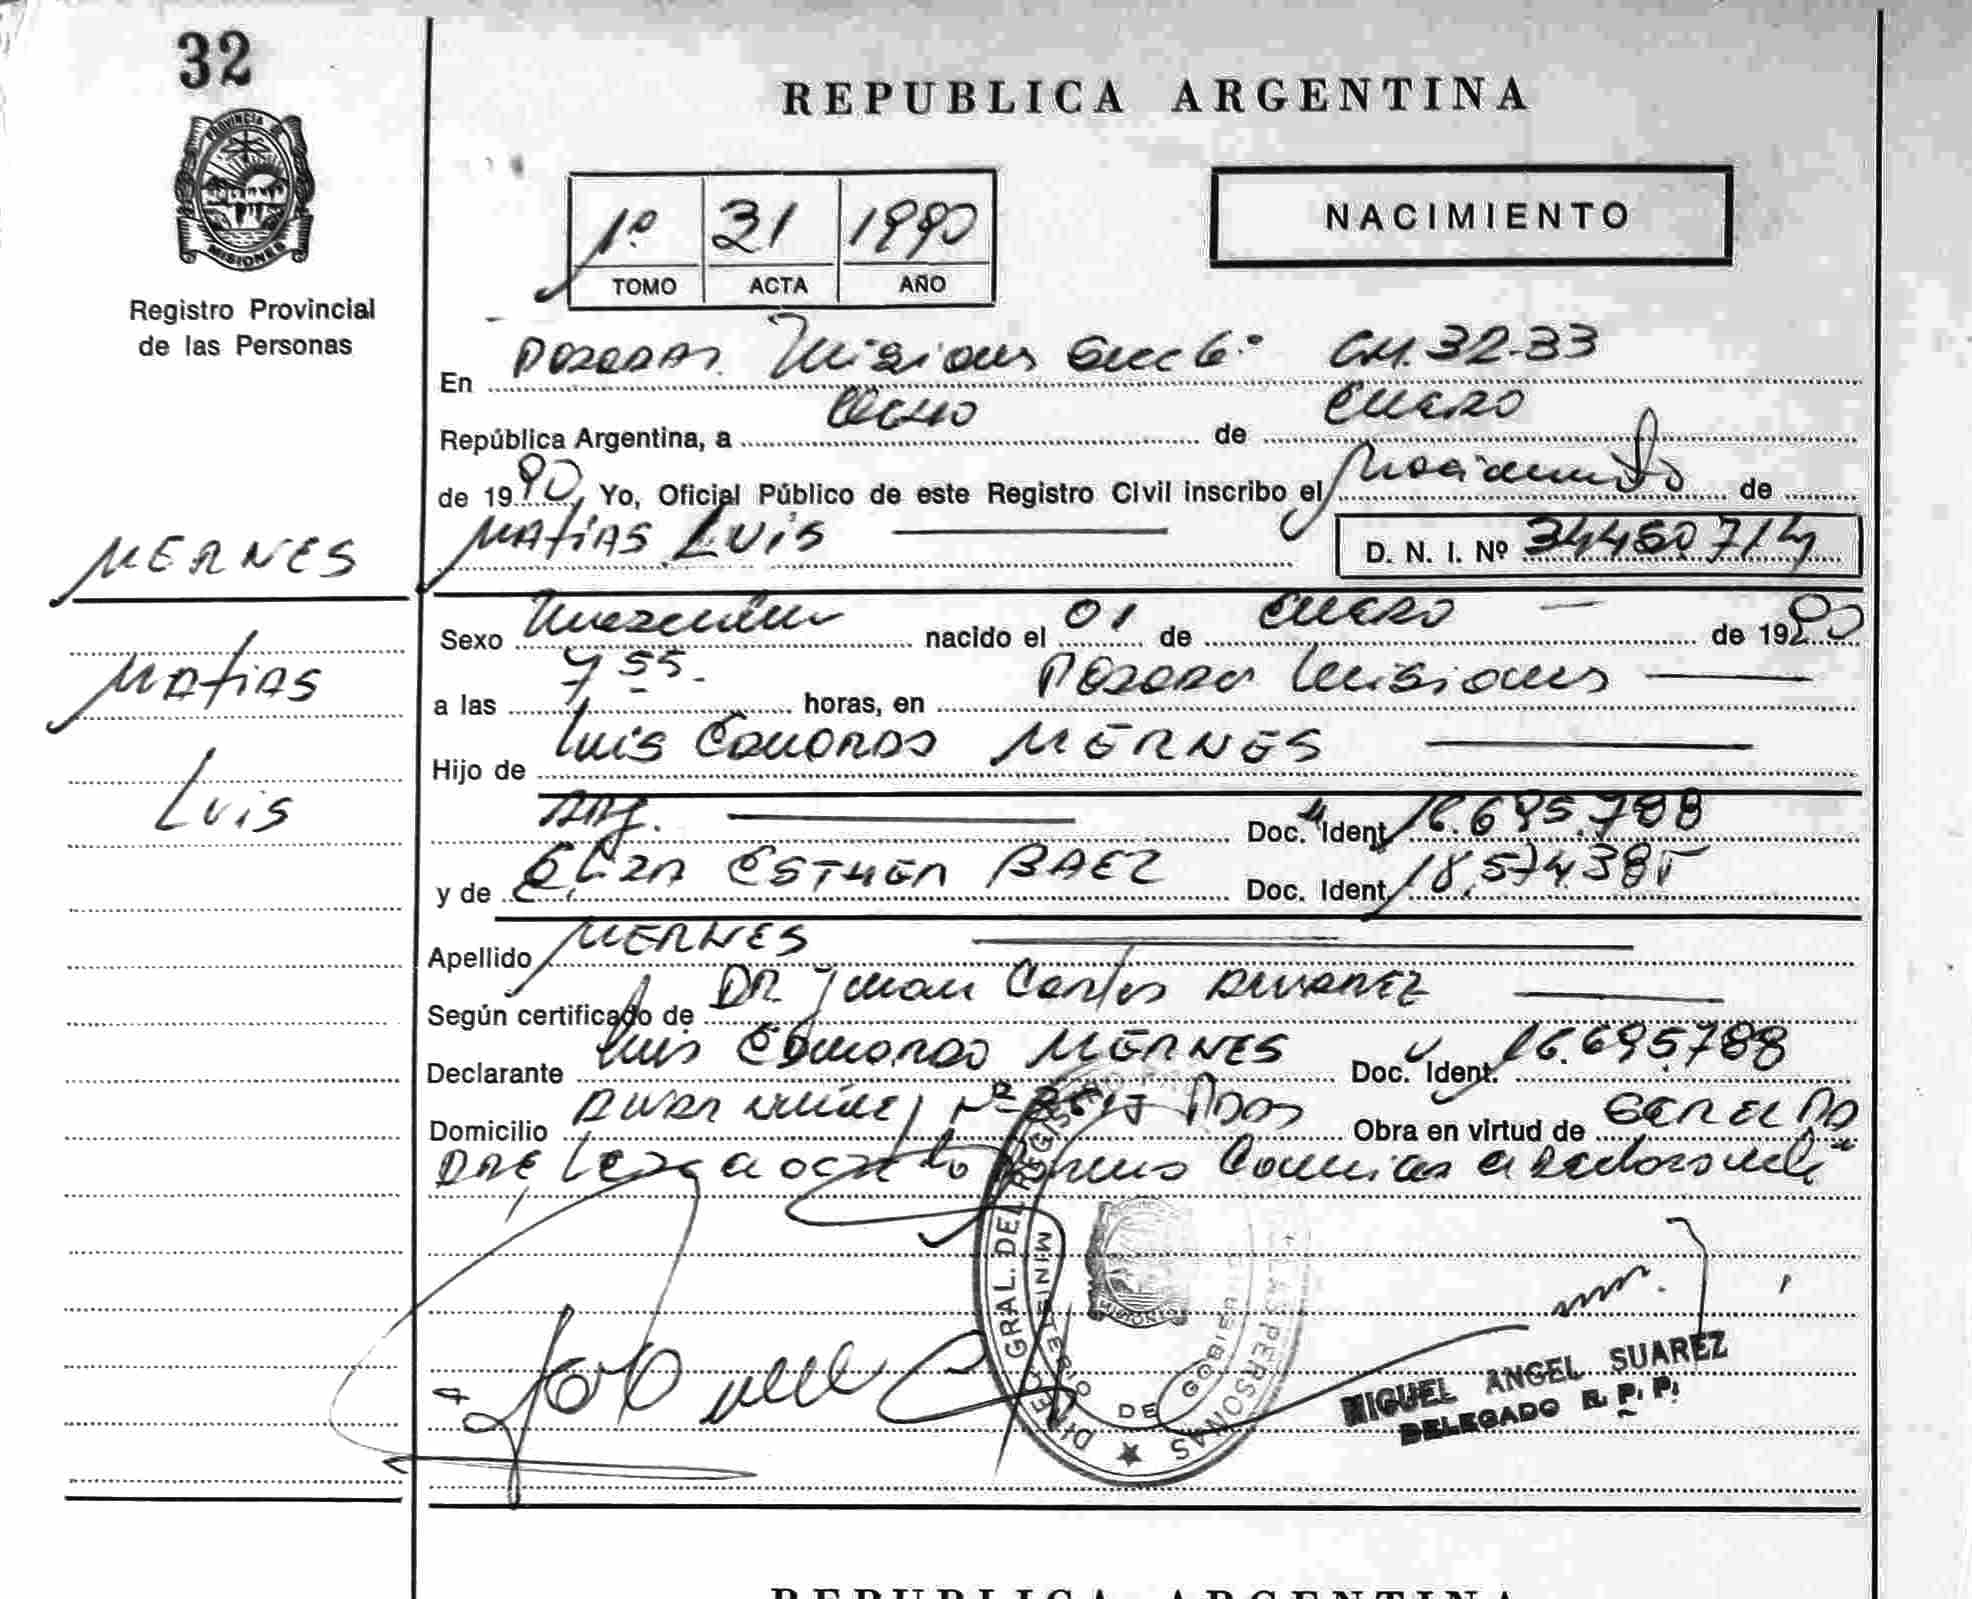 32
REPUBLICA ARGENTINA
PROVINCIA DE
MISIONES
Registro Provincial
de las Personas
NACIMIENTO
1º 31 1990
TOMO ACTA AÑO
En Posadas Misiones Secc 6º CM. 32-33
República Argentina, a Ocho de Enero
de 1990, Yo, Oficial Público de este Registro Civil inscribo el Nacimiento de
MATIAS LUIS D. N. I. Nº 34450714
MERNES
MATIAS
LUIS
Sexo Masculino nacido el 01 de Enero de 1990
a las 7 55. horas, en Posadas Misiones
Hijo de Luis Eduardo MERNES
Arg. Doc. Ident. 16.695.788
y de ESTHER BAEZ Doc. Ident. 18.574.385
Apellido MERNES
Según certificado de DR. Juan Carlos ALVAREZ
Declarante Luis Eduardo MERNES Doc. Ident. 16.695.788
Domicilio Nº Pdas Obra en virtud de SER EL PA
DRE
DIREC. GRAL. DEL REGISTRO DE LAS PERSONAS
MINISTERIO DE GOBIERNO
MISIONES
MIGUEL ANGEL SUAREZ
DELEGADO R. P. P.
REPUBLICA ARGENTINA